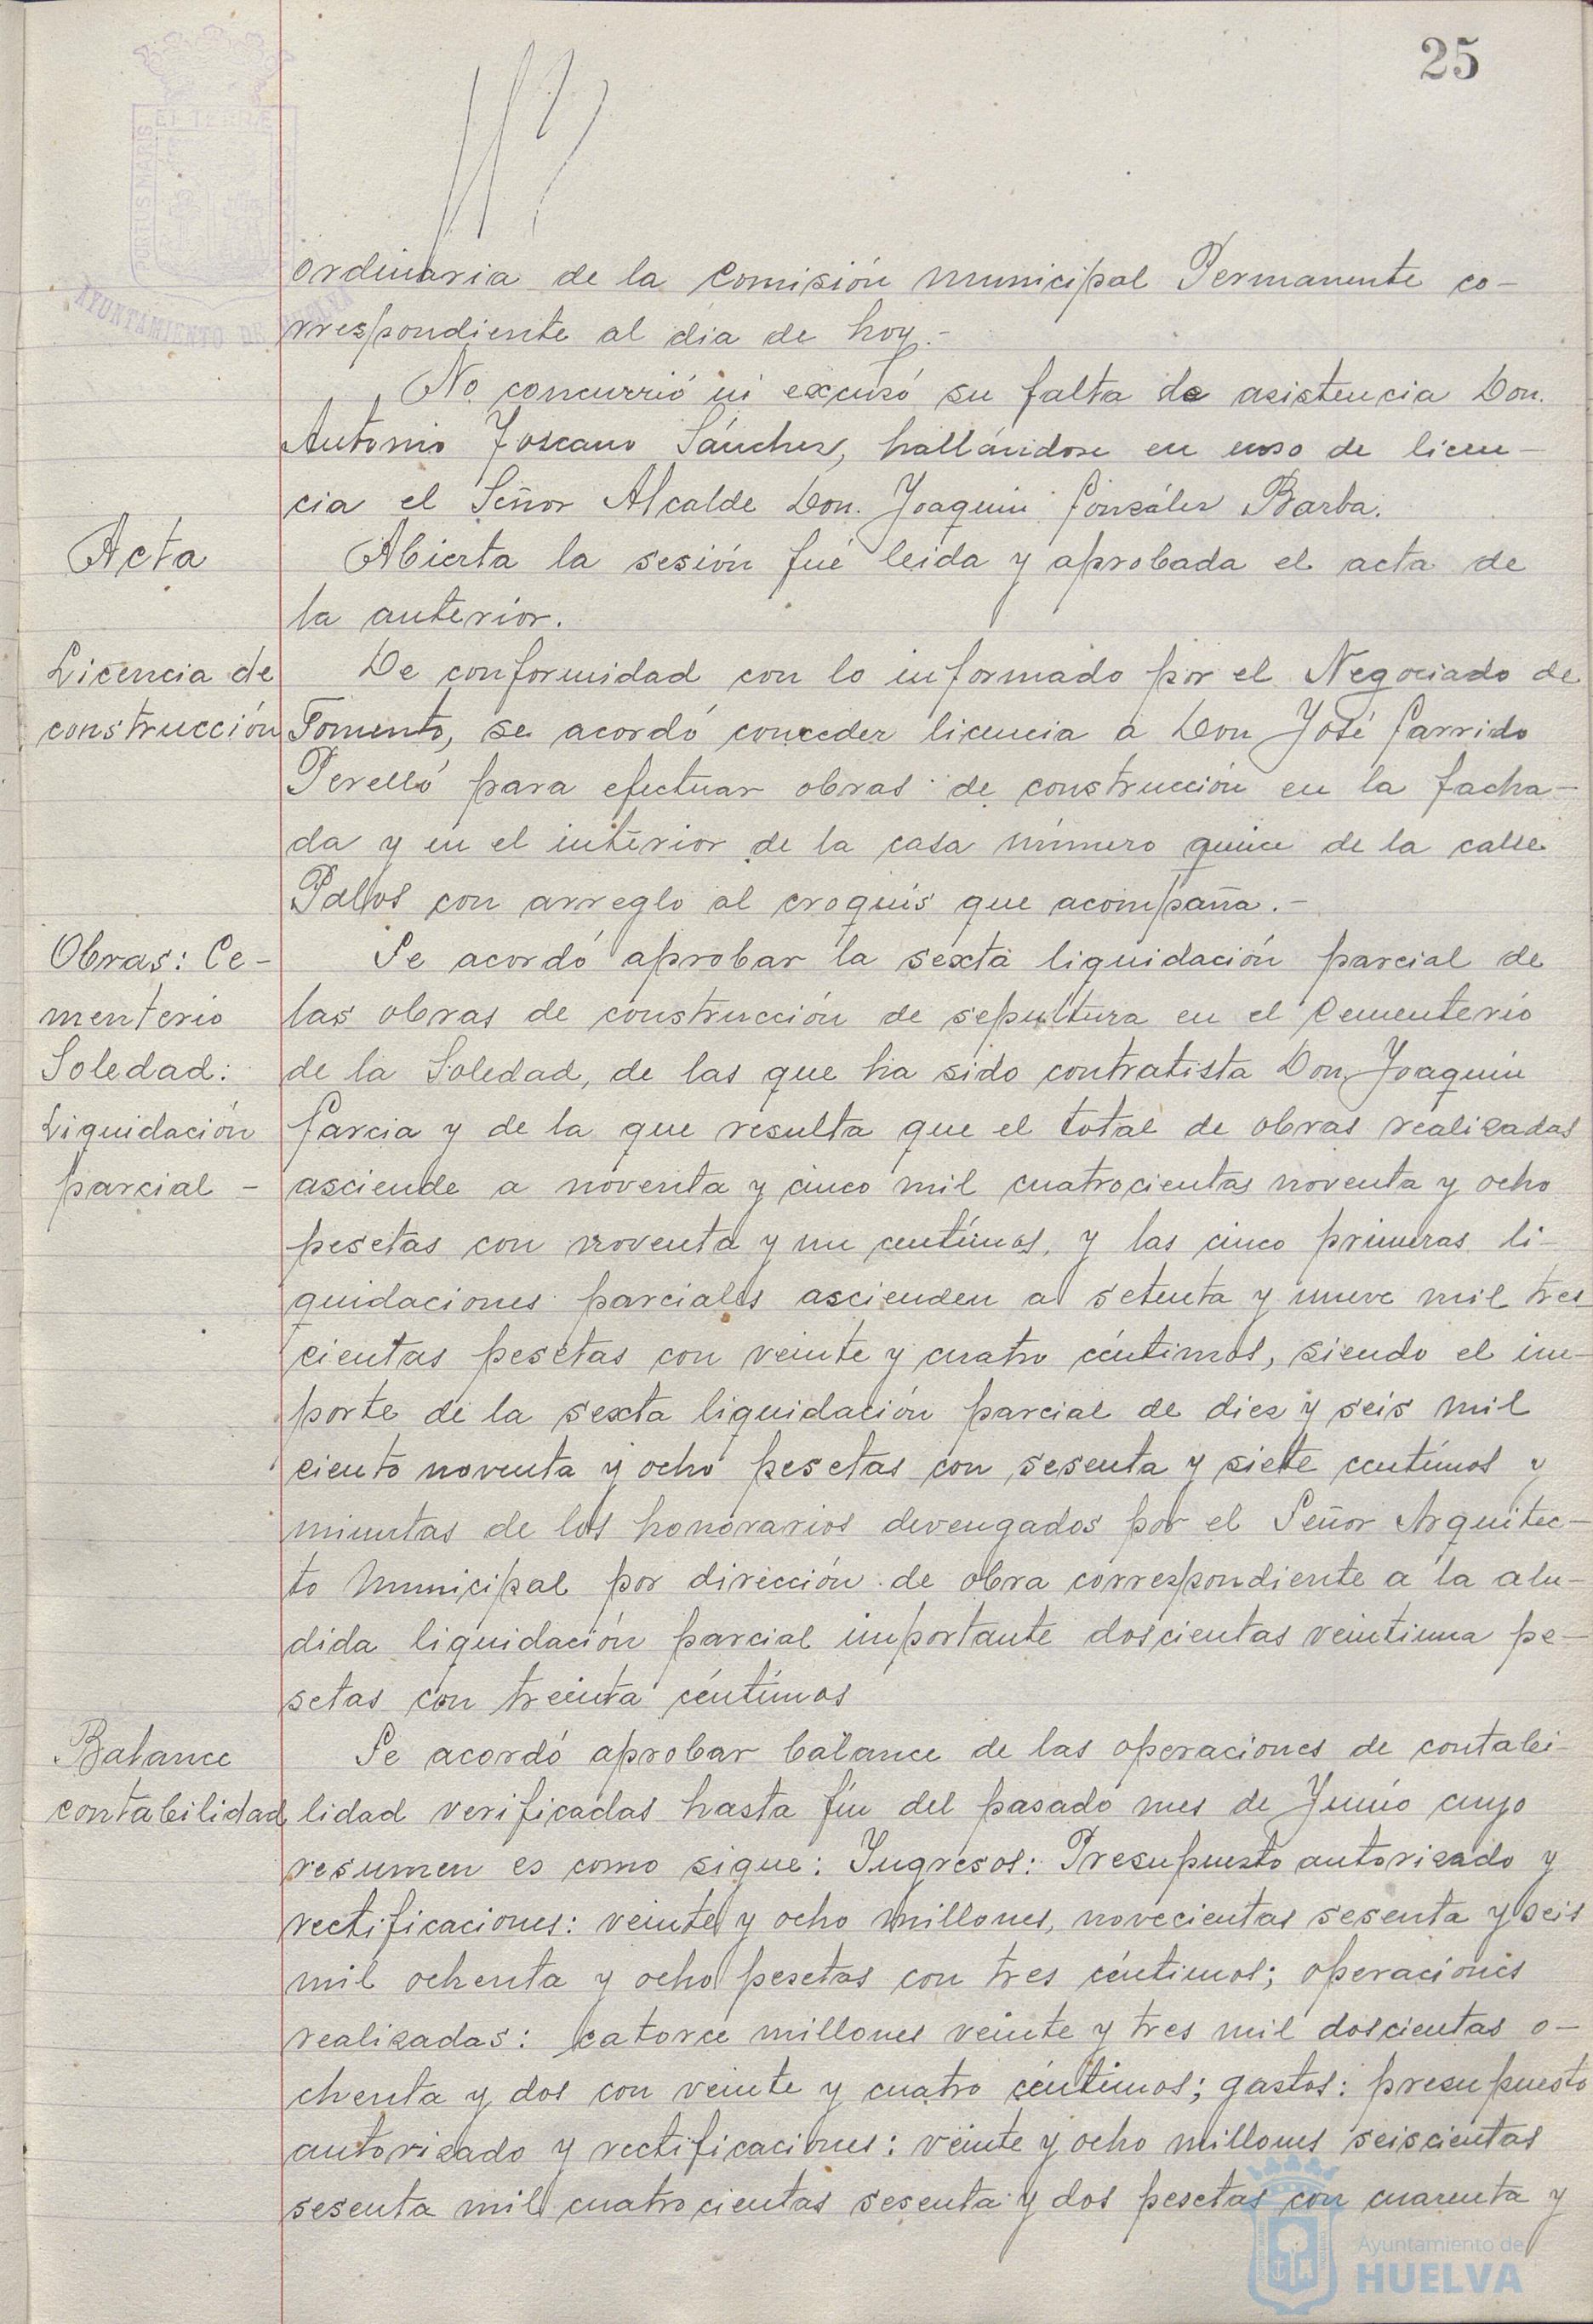 25
ordinaria de la Comisión Municipal Permanente co-
rrespondiente al dia de hoy.-
No concurrió ni excusó su falta de asistencia Don.
Antonio Toscano Sánchez, hallándose en uso de licen-
cia el Señor Alcalde Don. Joaquin González Barba.
Acta
Abierta la sesión fué leida y aprobada el acta de
la anterior.
Licencia de
construcción
De conformidad con lo informado por el Negociado de
Fomento, se acordó conceder licencia a Don José Garrido
Perelló para efectuar obras de construcción en la facha-
da y en el interior de la casa número quince de la calle
Palos con arreglo al croquis que acompaña.-
Obras: Ce-
menterio
Soledad:
Liquidación
parcial -
Se acordó aprobar la sexta liquidación parcial de
las obras de construcción de sepultura en el Cementerio
de la Soledad, de las que ha sido contratista Don Joaquin
Garcia y de la que resulta que el total de obras realizadas
asciende a noventa y cinco mil cuatrocientas noventa y ocho
pesetas con noventa y un centimos, y las cinco primeras li-
quidaciones parciales ascienden a setenta y nueve mil tres
cientas pesetas con veinte y cuatro céntimos, siendo el im-
porte de la sexta liquidación parcial de diez y seis mil
ciento noventa y ocho pesetas con sesenta y siete centimos y
minutas de los honorarios devengados por el Señor Arquitec-
to Municipal por dirección de obra correspondiente a la alu-
dida liquidación parcial importante doscientas veintiuna pe-
setas con treinta céntimos
Balance
contabilidad
Se acordó aprobar balance de las operaciones de contabi-
lidad verificadas hasta fin del pasado mes de Junio cuyo
resumen es como sigue: Ingresos: Presupuesto autorizado y
rectificaciones: veinte y ocho millones, novecientas sesenta y seis
mil ochenta y ocho pesetas con tres céntimos; operaciones
realizadas: catorce millones veinte y tres mil doscientas o-
chenta y dos con veinte y cuatro céntimos; gastos: presupuesto
autorizado y rectificaciones: veinte y ocho millones seiscientas
sesenta mil cuatrocientas sesenta y dos pesetas con cuarenta y
Ayuntamiento de
HUELVA